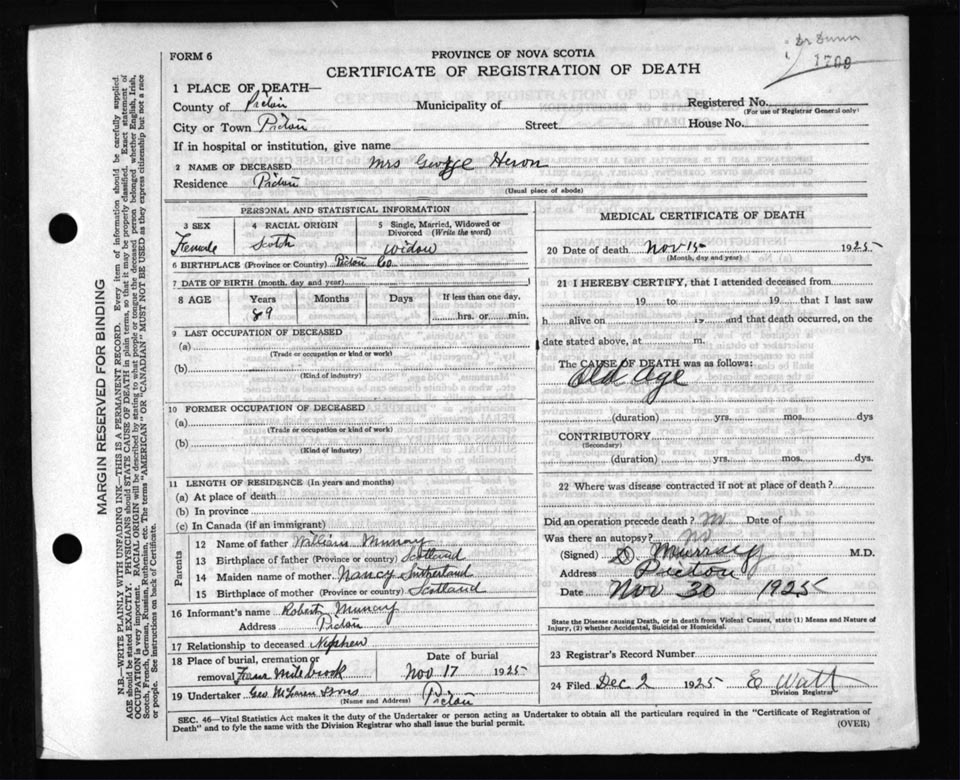 Dr Dunn
1709
FORM 6
PROVINCE OF NOVA SCOTIA
CERTIFICATE OF REGISTRATION OF DEATH
1 PLACE OF DEATH—
County of Pictou Municipality of Registered No.
(For use of Registrar General only)
City or Town Pictou Street House No.
If in hospital or institution, give name
2 NAME OF DECEASED Mrs George Heron
Residence Pictou
(Usual place of abode)
PERSONAL AND STATISTICAL INFORMATION
3 SEX 4 RACIAL ORIGIN 5 Single, Married, Widowed or
Divorced (Write the word)
Female Scotch Widow
6 BIRTHPLACE (Province or Country) Pictou Co
7 DATE OF BIRTH (month, day and year)
8 AGE Years Months Days If less than one day,
89 hrs. or min.
9 LAST OCCUPATION OF DECEASED
(a)
(Trade or occupation or kind or work)
(b)
(Kind of industry)
10 FORMER OCCUPATION OF DECEASED
(a)
(Trade or occupation or kind of work)
(b)
(Kind of industry)
11 LENGTH OF RESIDENCE (In years and months)
(a) At place of death
(b) In province
(c) In Canada (if an immigrant)
Parents
12 Name of father William Murray
13 Birthplace of father (Province or country) Scotland
14 Maiden name of mother Nancy Sutherland
15 Birthplace of mother (Province or country) Scotland
16 Informant's name Robert Murray
Address Pictou
17 Relationship to deceased Nephew
18 Place of burial, cremation or Date of burial
removal Mile brook Nov 17 1925
19 Undertaker Geo McLaren Sons Pictou
(Name and Address)
MEDICAL CERTIFICATE OF DEATH
20 Date of death Nov 15 1925
(Month, day and year)
21 I HEREBY CERTIFY, that I attended deceased from
19 to 19 that I last saw
h alive on 19 and that death occurred, on the
date stated above, at m.
The CAUSE OF DEATH was as follows:
Old Age
(duration) yrs. mos. dys
CONTRIBUTORY
(Secondary)
(duration) yrs. mos. dys.
22 Where was disease contracted if not at place of death?
Did an operation precede death? No Date of
Was there an autopsy? No
(Signed) D Murray M.D.
Address Pictou
Date Nov 30 1925
State the Disease causing Death, or in death from Violent Causes, state (1) Means and Nature of
Injury, (2) whether Accidental, Suicidal or Homicidal.
23 Registrar's Record Number
24 Filed Dec 2 1925 E Watt
Division Registrar
SEC. 46—Vital Statistics Act makes it the duty of the Undertaker or person acting as Undertaker to obtain all the particulars required in the "Certificate of Registration of
Death" and to fyle the same with the Division Registrar who shall issue the burial permit.
(OVER)
MARGIN RESERVED FOR BINDING
N.B.—WRITE PLAINLY WITH UNFADING INK—THIS IS A PERMANENT RECORD. Every item of information should be carefully supplied.
AGE should be stated EXACTLY. PHYSICIANS should STATE CAUSE OF DEATH in plain terms, so that it may be properly classified. Exact statement of
OCCUPATION is very important. RACIAL ORIGIN will be described by stating to what people or tongue the deceased person belonged whether English, Irish,
Scotch, French, German, Russian, Ruthenian, etc. The terms "AMERICAN" OR "CANADIAN" MUST NOT BE USED as they express citizenship but not a race
or people. See instructions on back of Certificate.